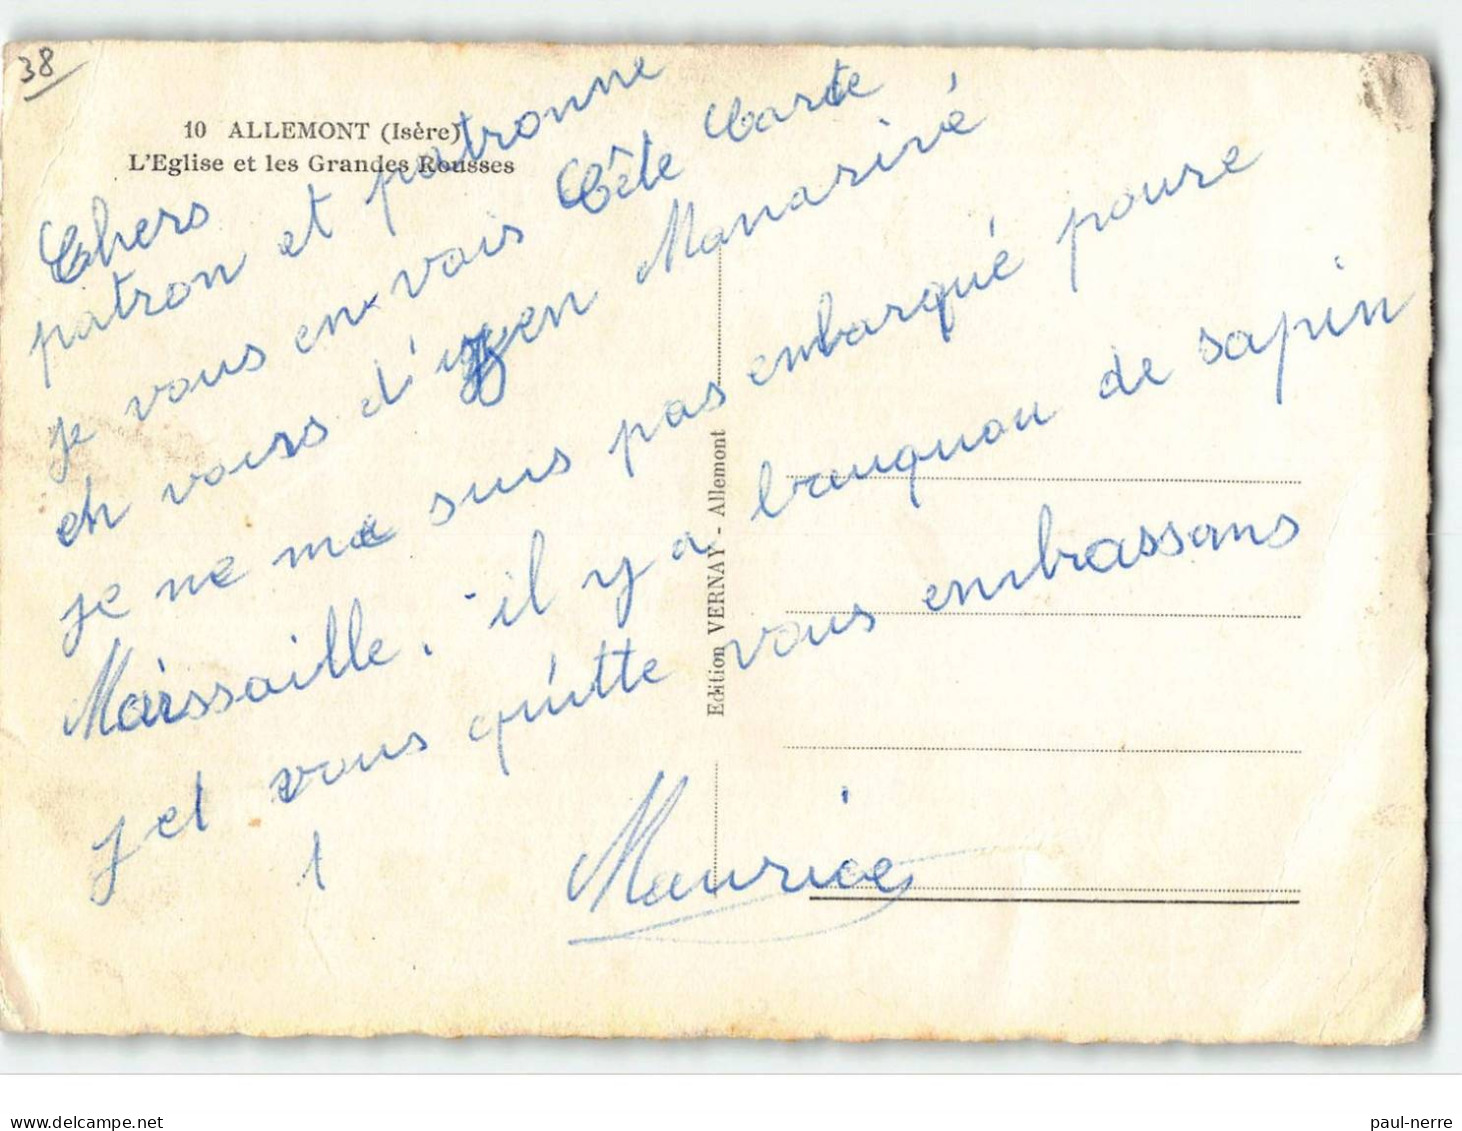 38
10 ALLEMONT (Isère)
L'Eglise et les Grandes Rousses
Chers
patron et patronne
je vous en vois Cête Carte
en voirs d'uyen Manarivé
je ne me suis pas embarqué poure
Marssaille. il y a bauquou de sapin
jet vous quitte vous embrassans
Maurice
Edition VERNAY - Allemont
paul-nerre